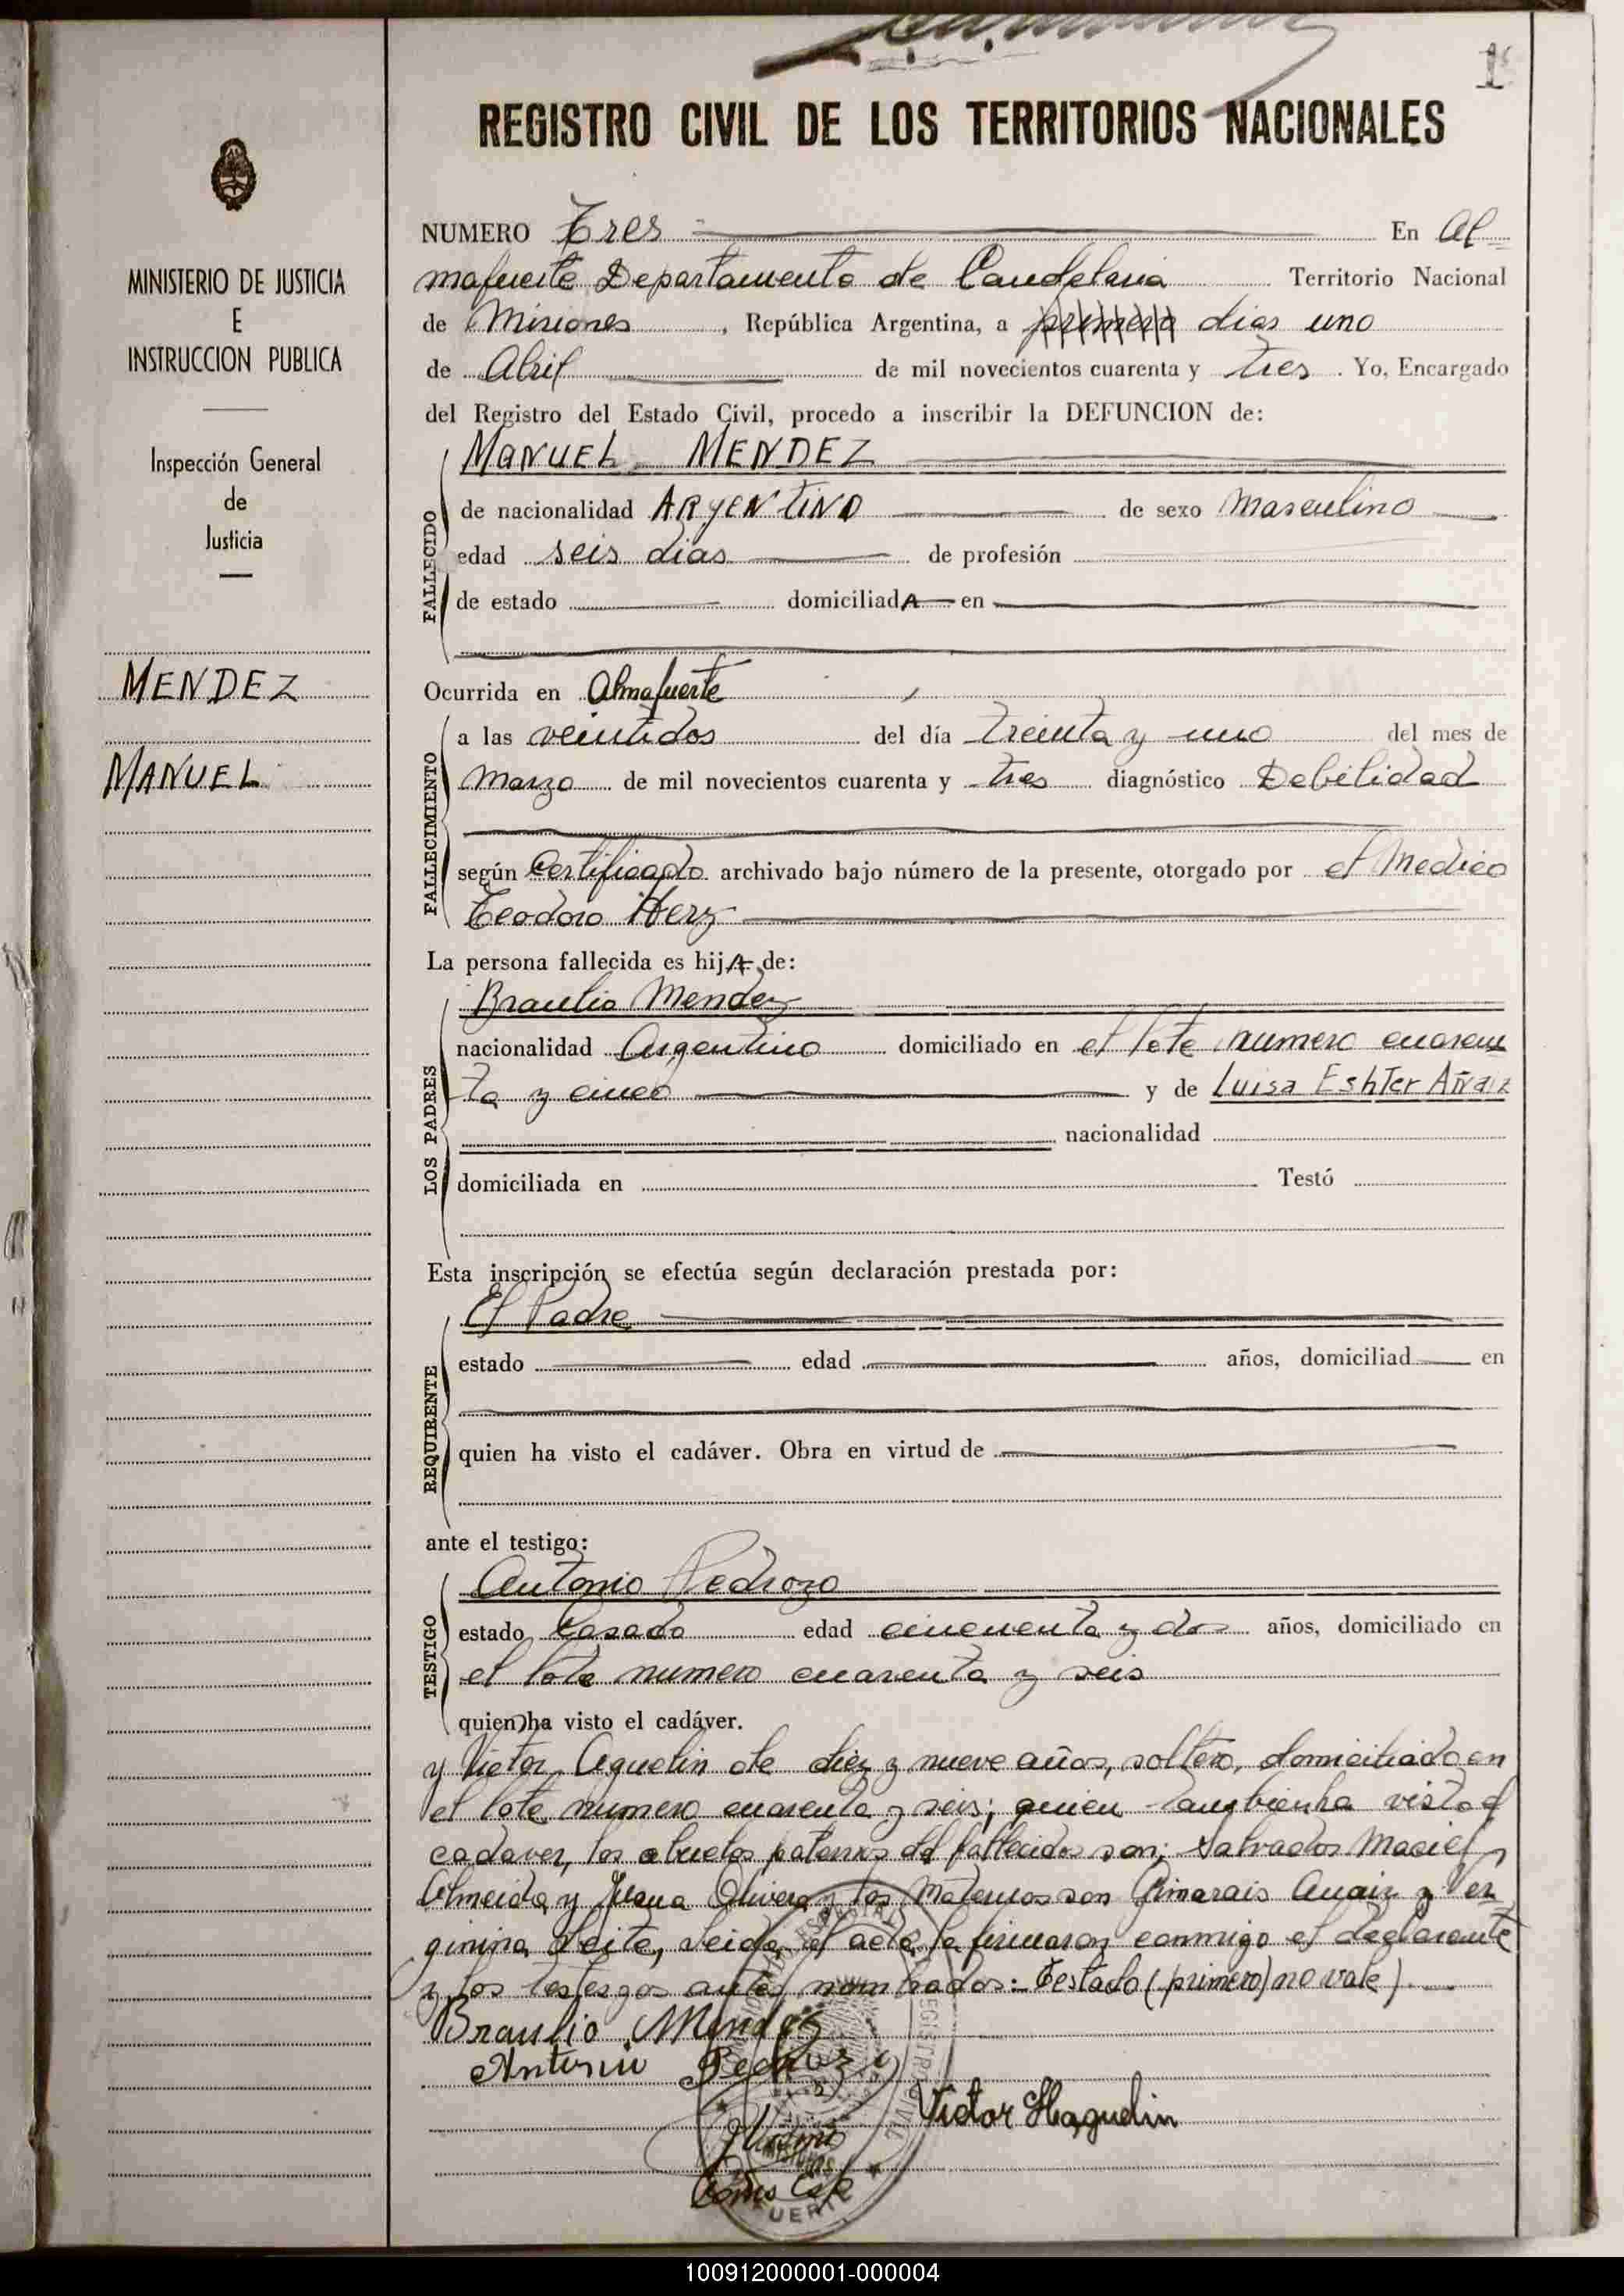 1
REGISTRO CIVIL DE LOS TERRITORIOS NACIONALES
MINISTERIO DE JUSTICIA
E
INSTRUCCION PUBLICA
Inspección General
de
Justicia
MENDEZ
MANUEL
NUMERO Tres En Al
mafuerte Departamento de Candelaria Territorio Nacional
de Misiones, República Argentina, a primero dias uno
de Abril de mil novecientos cuarenta y tres. Yo, Encargado
del Registro del Estado Civil, procedo a inscribir la DEFUNCION de:
FALLECIDO
MANUEL MENDEZ
de nacionalidad ARgENTINO de sexo Masculino
edad seis dias de profesión
de estado domiciliadA en
Ocurrida en Almafuerte
FALLECIMIENTO
a las veintidos del día treinta y uno del mes de
Marzo de mil novecientos cuarenta y tres diagnóstico Debilidad
según Certificado archivado bajo número de la presente, otorgado por el Medico
Teodoro Herz
La persona fallecida es hijA de:
LOS PADRES
Braulio Mendez
nacionalidad Argentino domiciliado en el lote numero cuaren
ta y cinco y de Luisa Eshter
nacionalidad
domiciliada en Testó
Esta inscripción se efectúa según declaración prestada por:
REQUIRENTE
El Padre
estado edad años, domiciliad en
quien ha visto el cadáver. Obra en virtud de
ante el testigo:
TESTIGO
Antonio Pedrozo
estado Casado edad cincuenta y dos años, domiciliado en
el lote numero cuarenta y seis
quien ha visto el cadáver.
y Victor Aguelin de diez y nueve años, soltero, domiciliado en
el lote numero cuarenta y seis; quien tambien ha visto el
cadaver, los abuelos paternos del fallecido son; Salvador Maciel
Almeida y Juana Olivera y los Maternos son Gimarais y Ver
ginina Leite, Leida el acta la firmaron conmigo el declarante
y los testigos antes nombrados:- Testado (primero) no vale).
Braulio Mendez
Antonio Pedrozo
Victor Haguelin
REGISTRO CIVIL
100912000001-000004